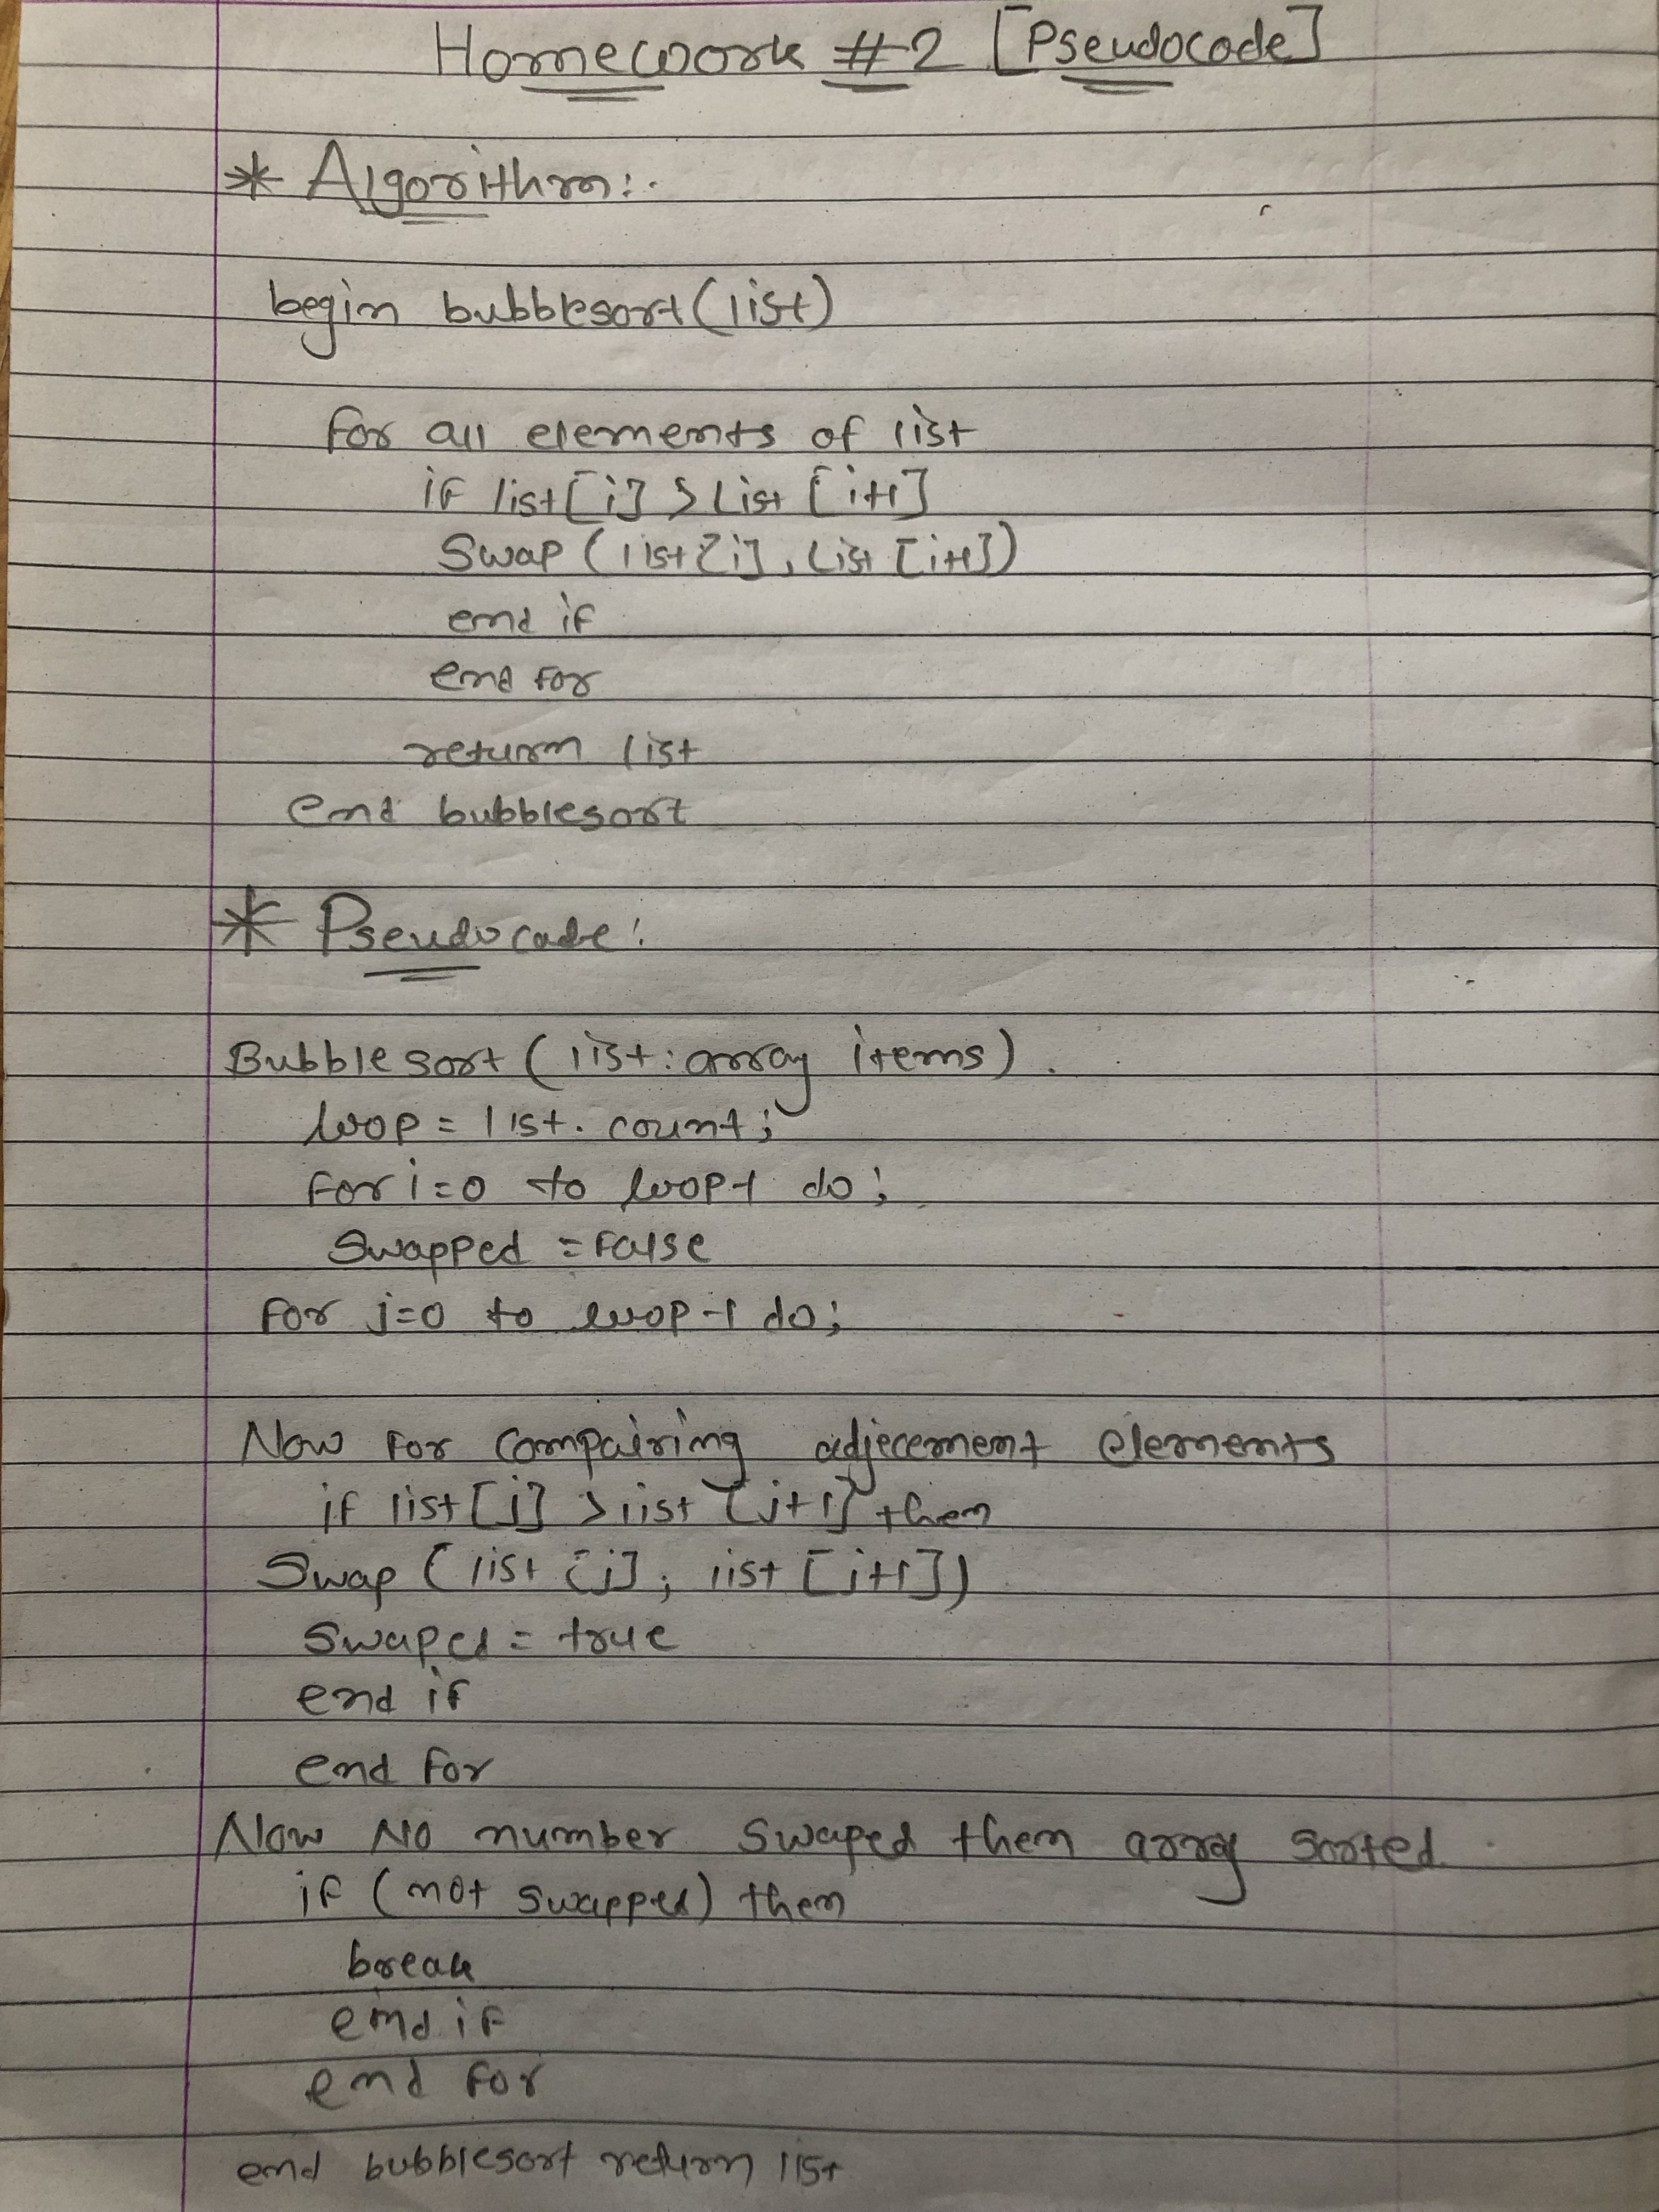 Homework #2 [Pseudocode]
* Algorithm:-
begin bubblesort(list)
for all elements of list
if list[i] > list [i+1]
Swap (list[i], list [i+1])
end if
end for
return list
end bubblesort
* Pseudocode:
Bubble sort (list: array items).
loop = list. count;
for i=0 to loop-1 do;
Swapped = false
for j=0 to loop-1 do;
Now for compairing adjecement elements
if list[j] > list [j+1] then
Swap (list [j], list [j+1])
Swaped = true
end if
end for
Now No number swaped then array sorted.
if (not swapped) then
break
end if
end for
end bubblesort return list